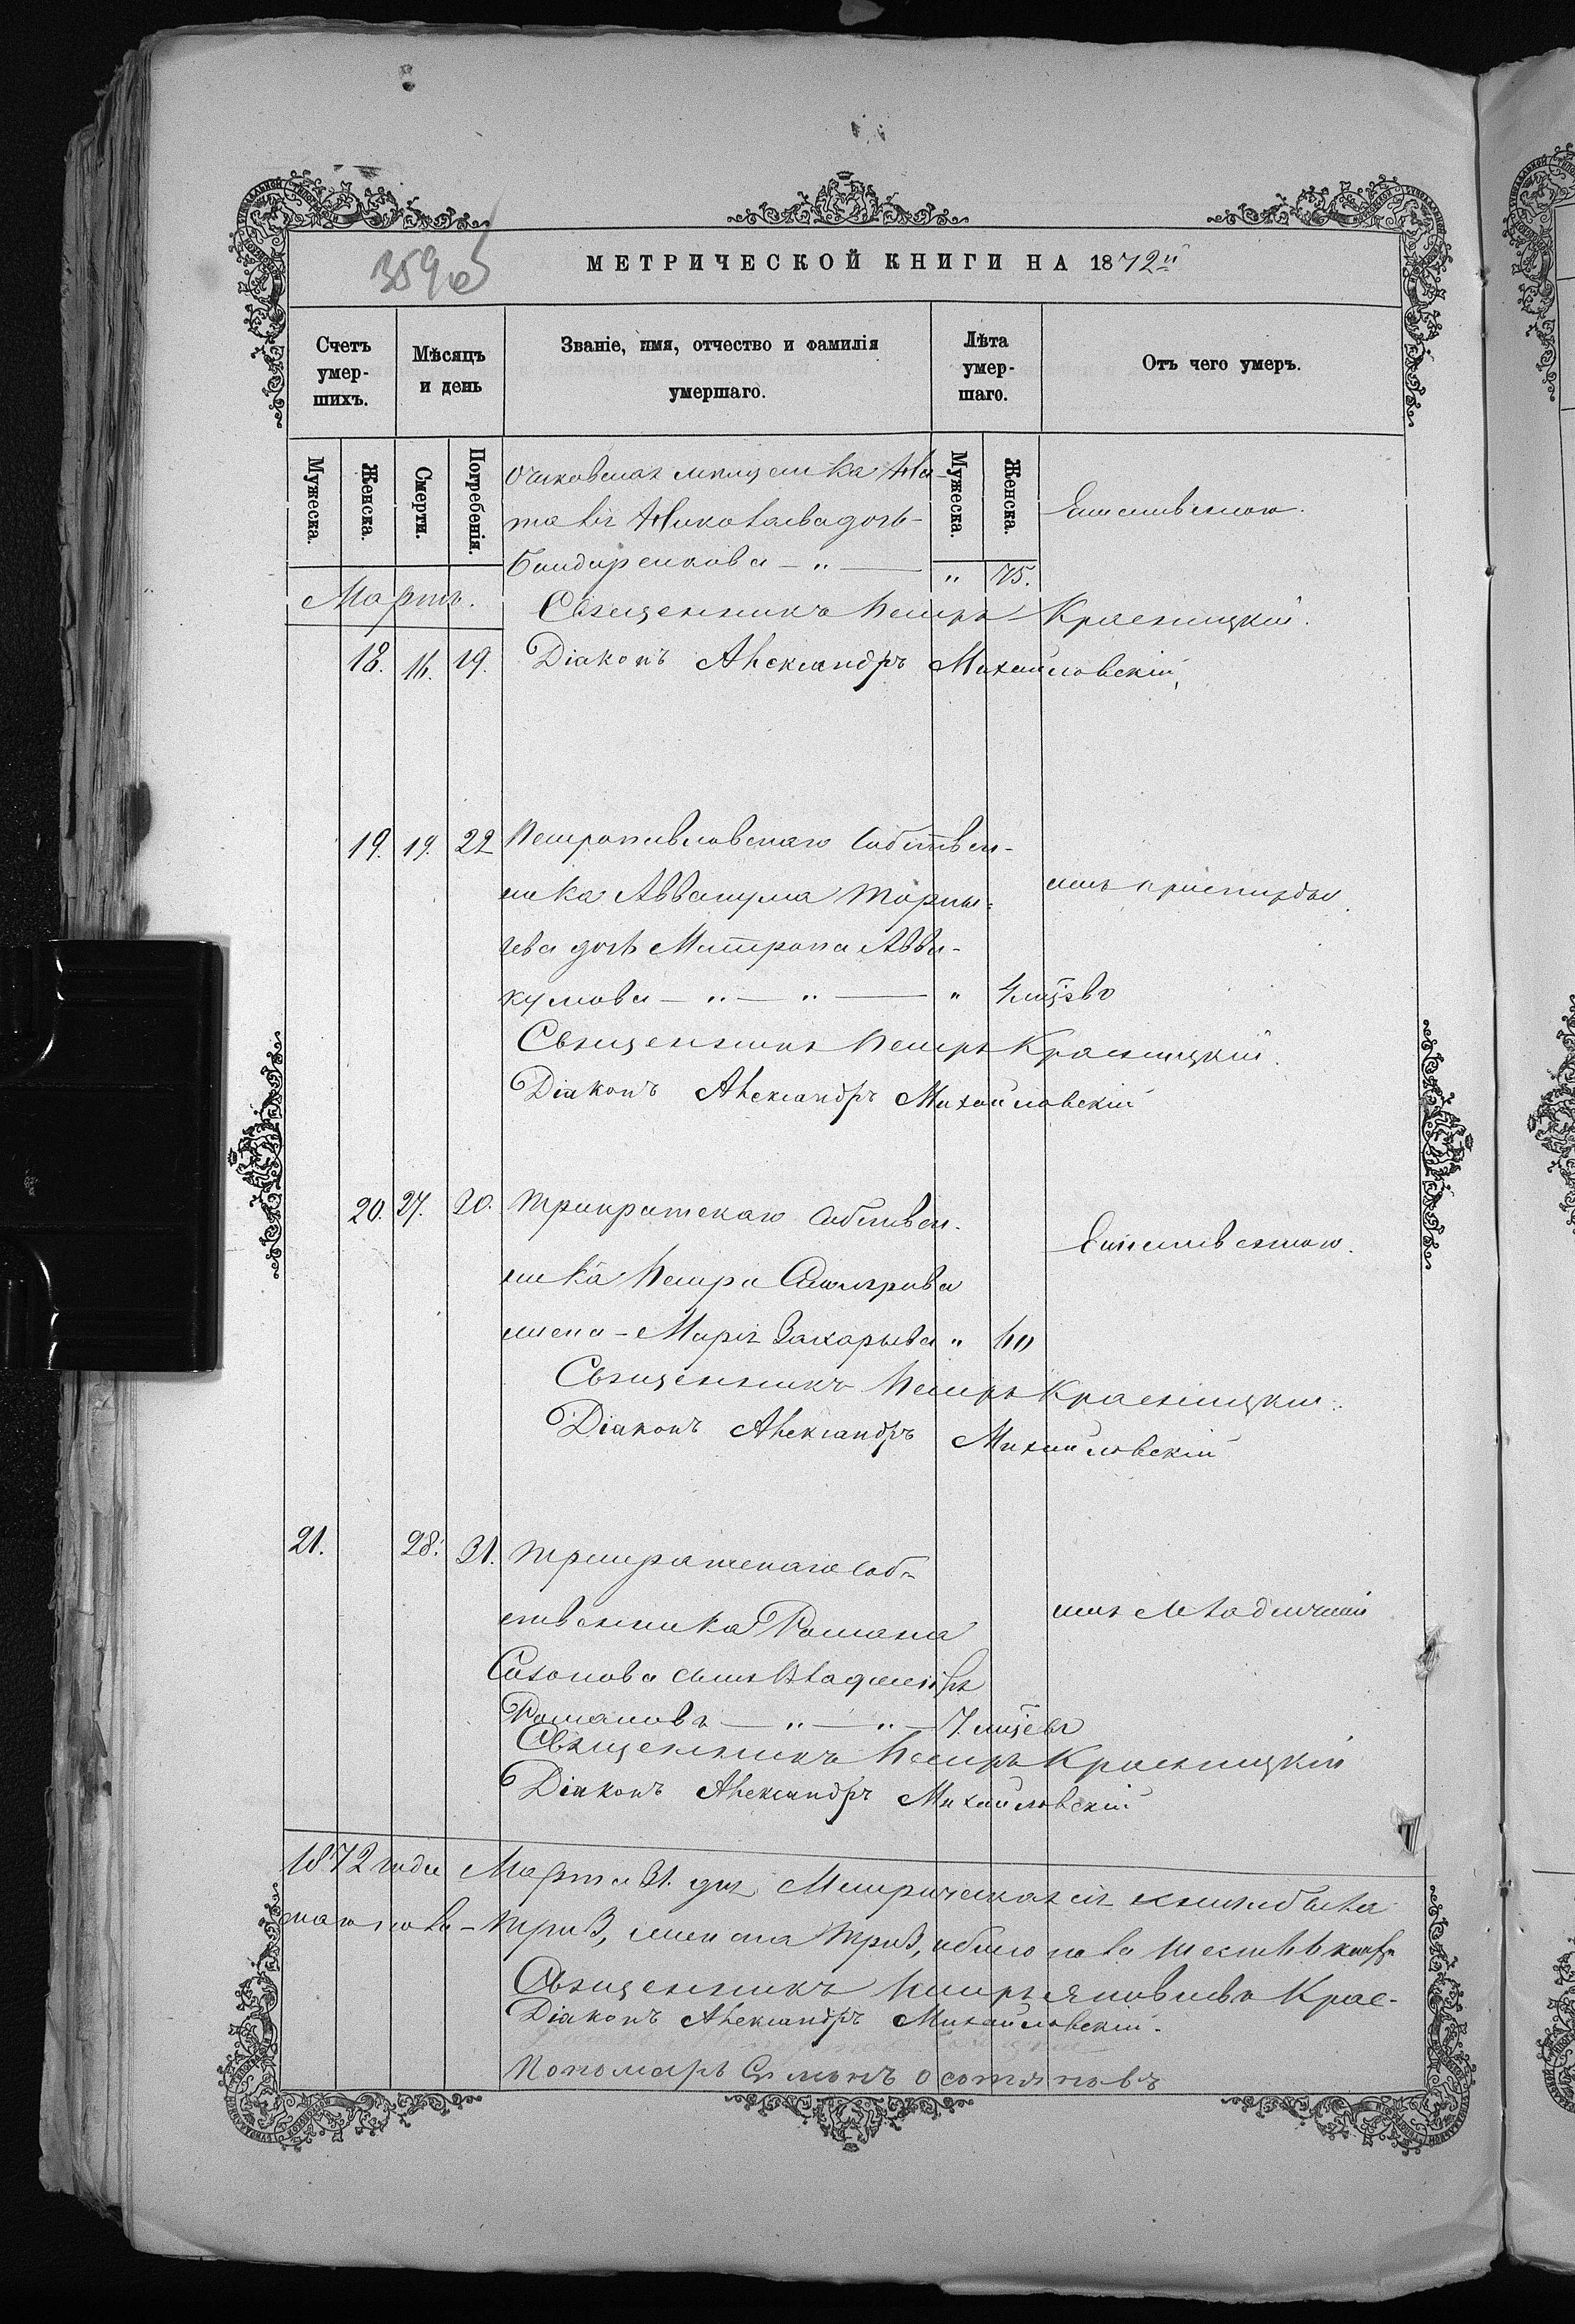 359об
МЕТРИЧЕСКОЙ КНИГИ НА 1872й
Счетъ умер-шихъ.
Мѣсяцъ и день
Званіе, имя, отчество и фамилія умершаго.
Лѣта умер-шаго.
Отъ чего умеръ.
Мужеска.
Женска.
Смерти.
Погребенія.
Мужеска.
Женска.
Мартъ.
18. 16. 19.
Очаковская мѣщанка На-
талія Николаева дочь
Бондаренкова — " — " 75.
Естественною.
Священникъ Петръ Красницкій.
Діаконъ Александръ Михайловскій
19. 19. 22
Петропавловскаго собствен-
ника Аввакума
дочь Матрона Авва-
кумова — " — " — " 4 мѣсяцовъ
Священникъ Петръ Красницкій.
Діаконъ Александръ Михайловскій
20. 27. 30.
Трикратскаго собствен-
ника Петра
жена Марія Захарьева " 60
Естественною.
Священникъ Петръ Красницкій.
Діаконъ Александръ Михайловскій
21. 28. 31.
Трикратскаго соб-
ственника Романа
Сахонова сынъ Владиміръ
Романовъ — " — " — 7 мѣсяцевъ
Священникъ Петръ Красницкій
Діаконъ Александръ Михайловскій
1872 года Марта 31. дня Метрическая сія книга была
Священникъ Петръ Яковлевъ Крас-
Діаконъ Александръ Михайловскій.
Пономарь